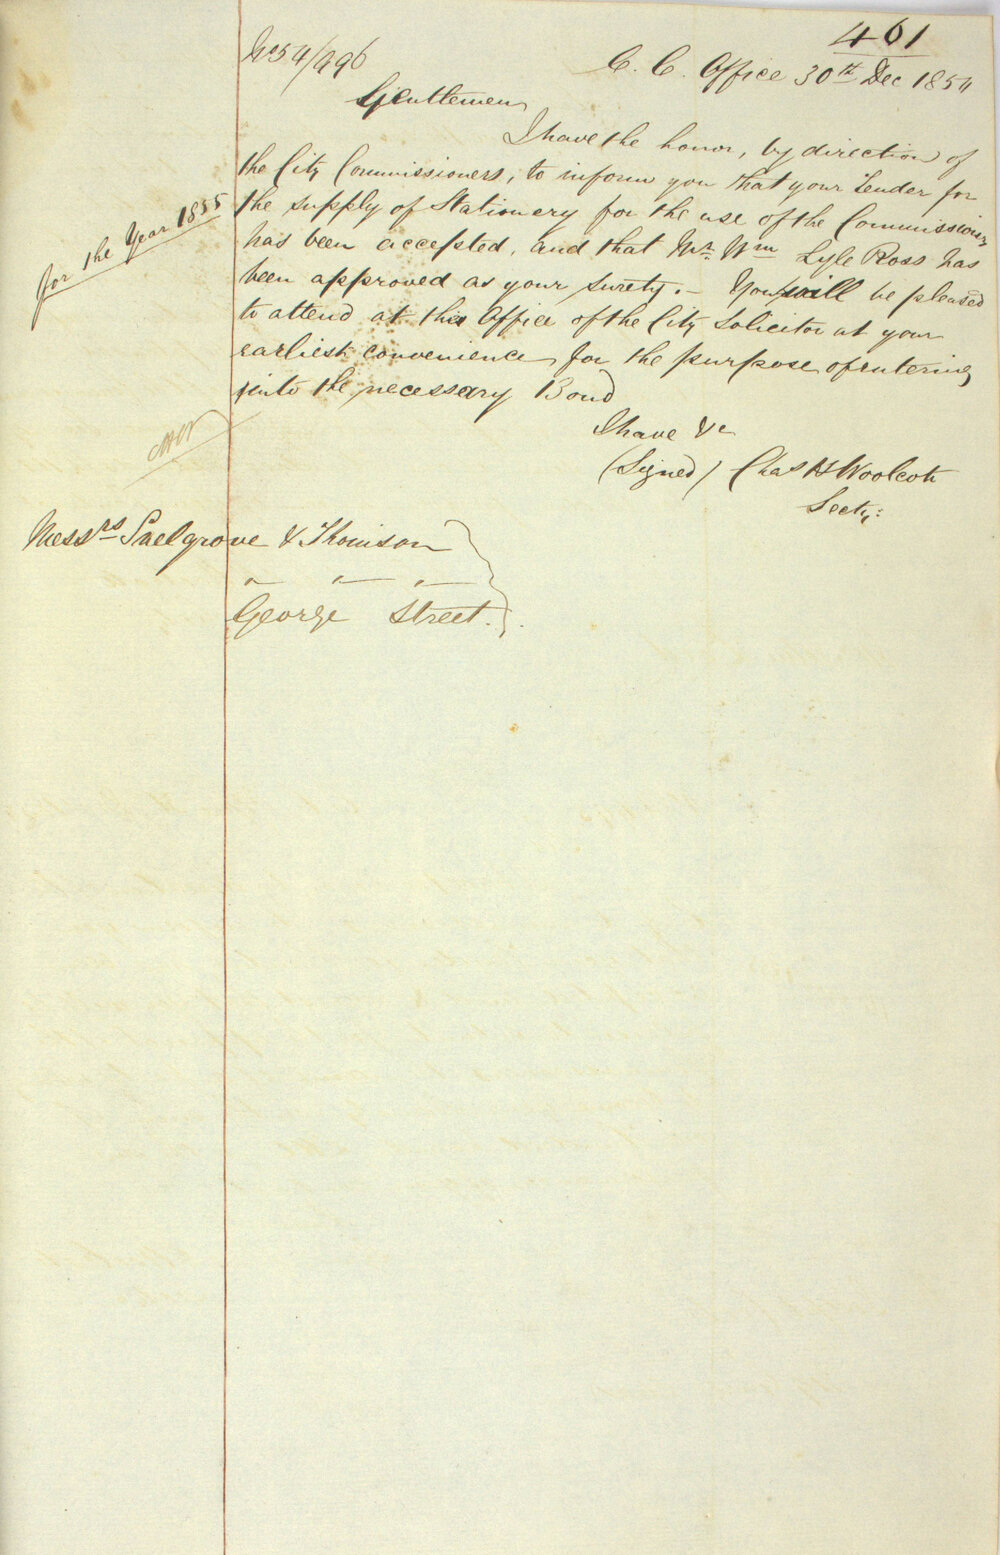 461
No 54/996
C. C. Office 30th Dec 1854
Gentlemen
I have the honor, by direction of
the City Commissioners, to inform you that your Tender for
the supply of Stationery for the use of the Commissioners
for the Year 1855
has been accepted, and that Mr. Wm Lyle Ross has
been approved as your surety. - You will be pleased
to attend at the Office of the City Solicitor at your
earliest convenience for the purpose of entering
into the necessary Bond
I have &c
(Signed) Chas H Woolcott
Secty:
Messrs Snelgrove & Thomson
George Street.